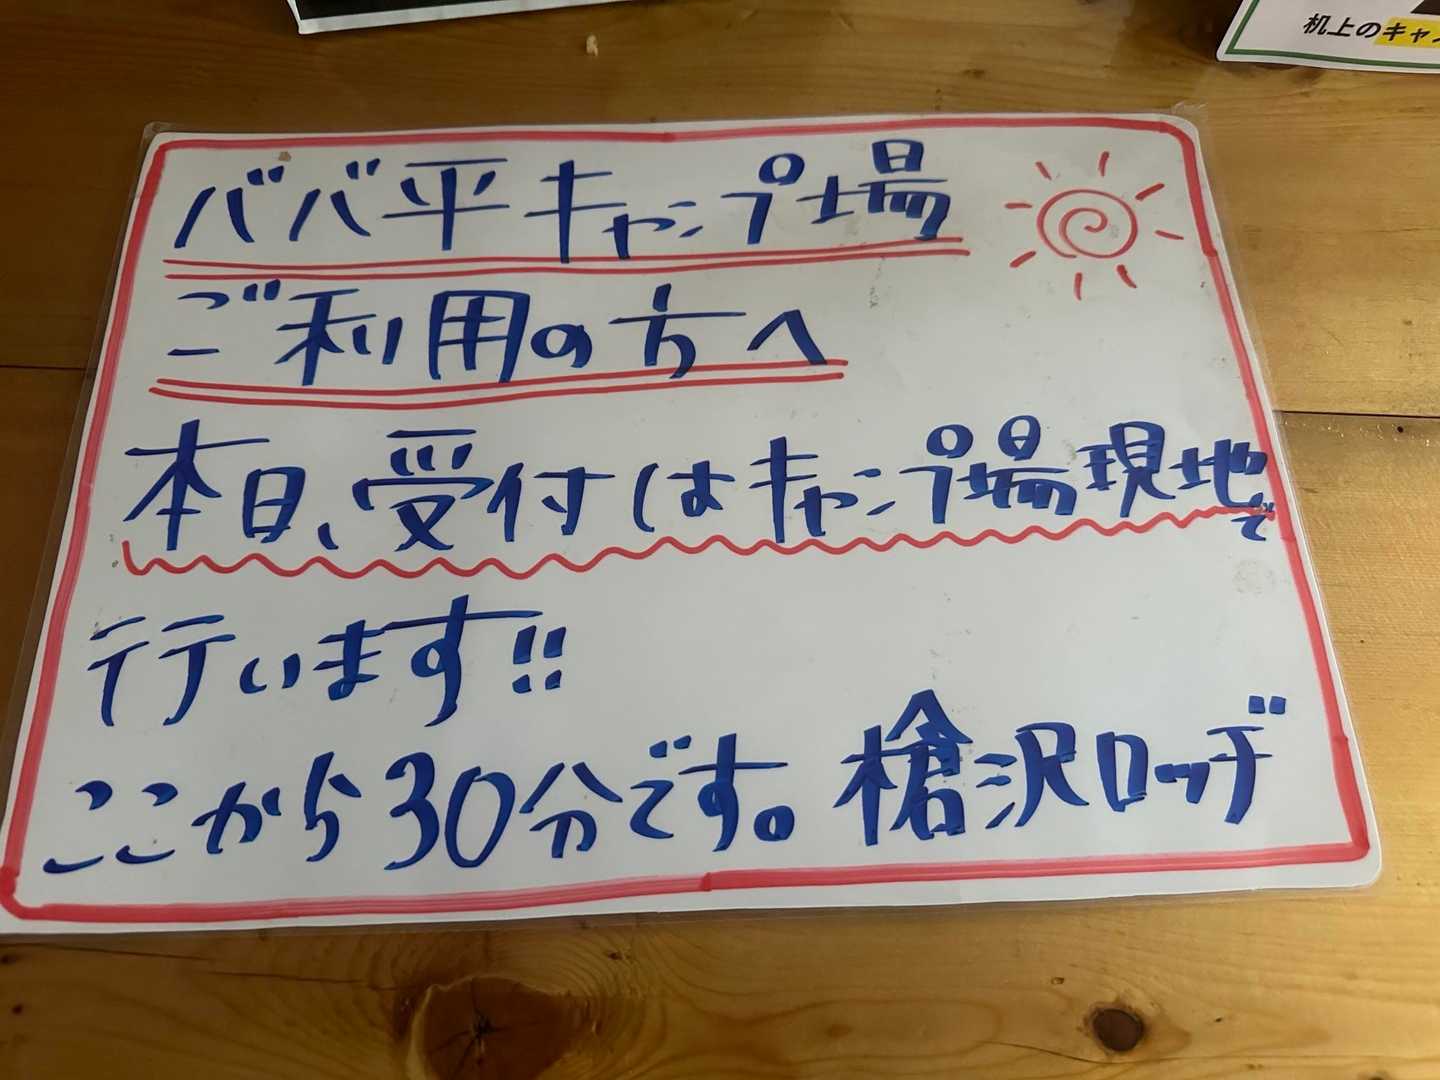 机上のキャ
ババ平キャンプ場
ご利用の方へ
本日、受付はキャンプ場現地で
行います!!
ここから30分です。槍沢ロッヂ